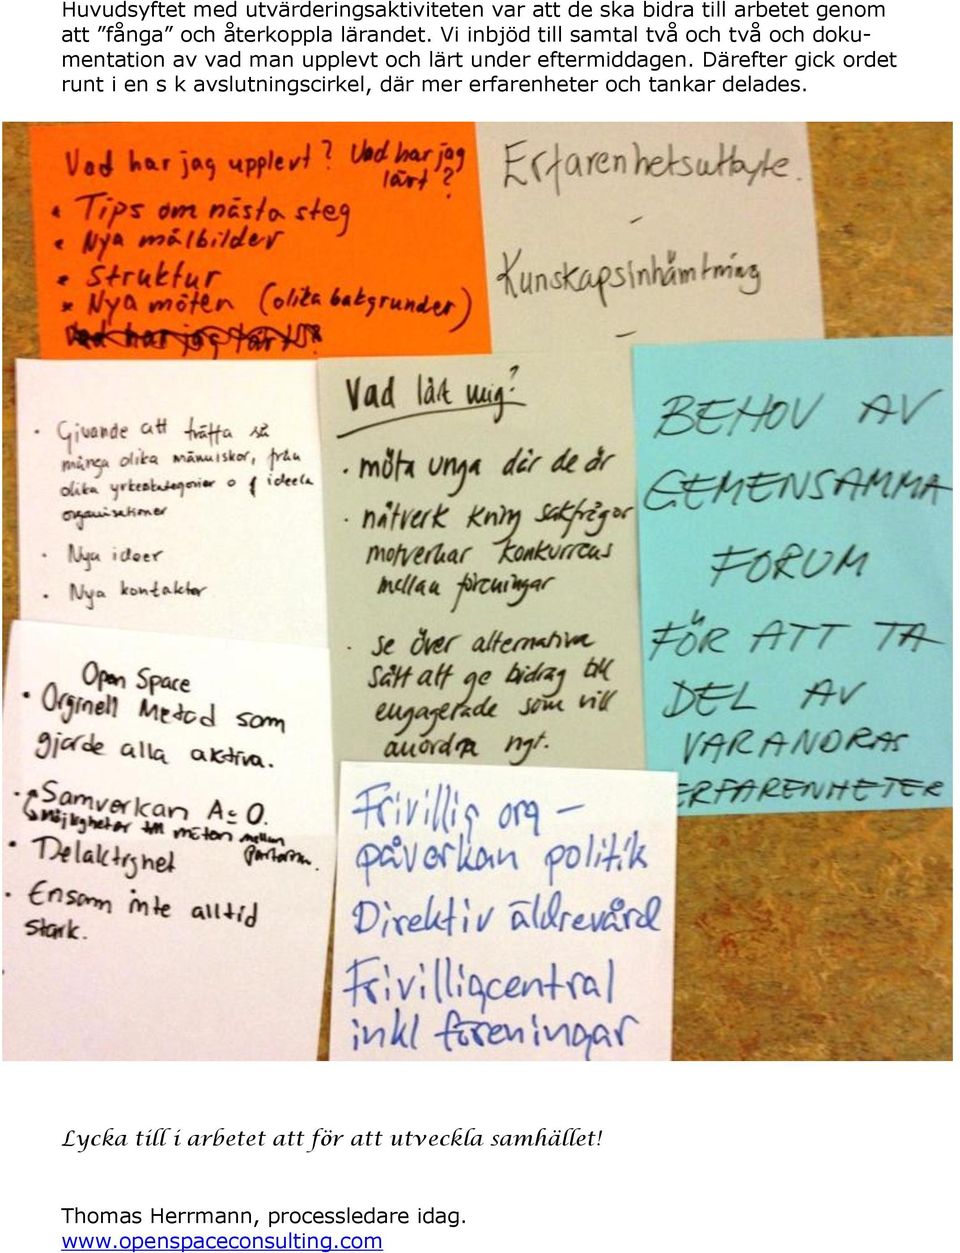 Huvudsyftet med utvärderingsaktiviteten var att de ska bidra till arbetet genom
att ”fånga” och återkoppla lärandet. Vi inbjöd till samtal två och två och doku-
mentation av vad man upplevt och lärt under eftermiddagen. Därefter gick ordet
runt i en s k avslutningscirkel, där mer erfarenheter och tankar delades.
Vad har jag upplevt? Vad har jag
lärt?
• Tips om nästa steg
• Nya målbilder
• Struktur
• Nya möten (olika bakgrunder)
Erfarenhetsutbyte.
-
Kunskapsinhämtning
-
• Givande att träffa så
många olika människor, från
olika yrkeskategorier o f ideella
organisationer
• Nya ideer
• Nya kontakter
Vad lärt mig?
• möta unga där de är
• nätverk kring sakfrågor
motverkar konkurrens
mellan föreningar
• se över alternativa
sätt att ge bidrag till
engagerade som vill
anordna ngt.
BEHOV AV
GEMENSAMMA
FORUM
FÖR ATT TA
DEL AV
VARANDRAS
ERFARENHETER
Open Space
• Orginell Metod som
gjorde alla aktiva.
• Samverkan A=O.
Möjligheter till möten mellan
• Delaktighet
• Ensam inte alltid
stark.
Frivillig org -
påverkan politik
Direktiv äldrevård
Frivilligcentral
inkl föreningar
Lycka till i arbetet att för att utveckla samhället!
Thomas Herrmann, processledare idag.
www.openspaceconsulting.com